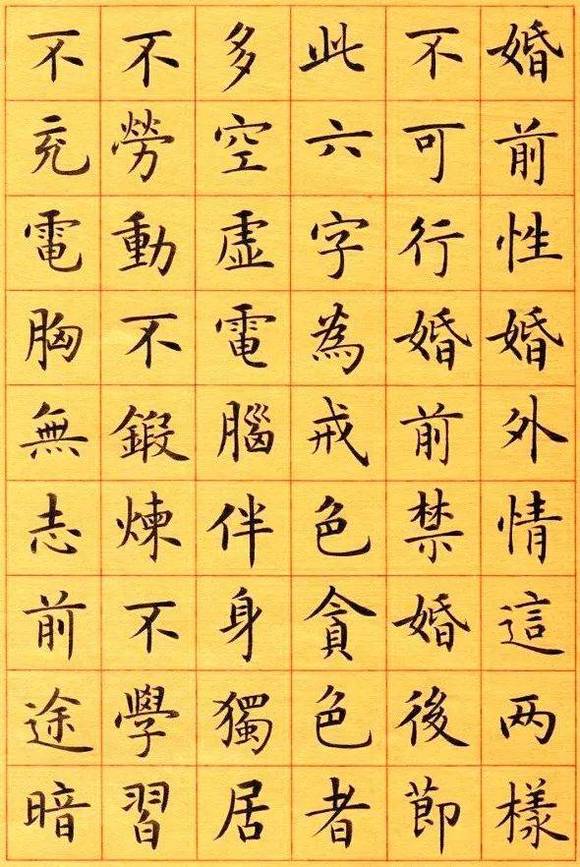 婚前性婚外情這两樣
不可行婚前禁婚後節
此六字為戒色貪色者
多空虛電腦伴身獨居
不勞動不鍛煉不學習
不充電胸無志前途暗